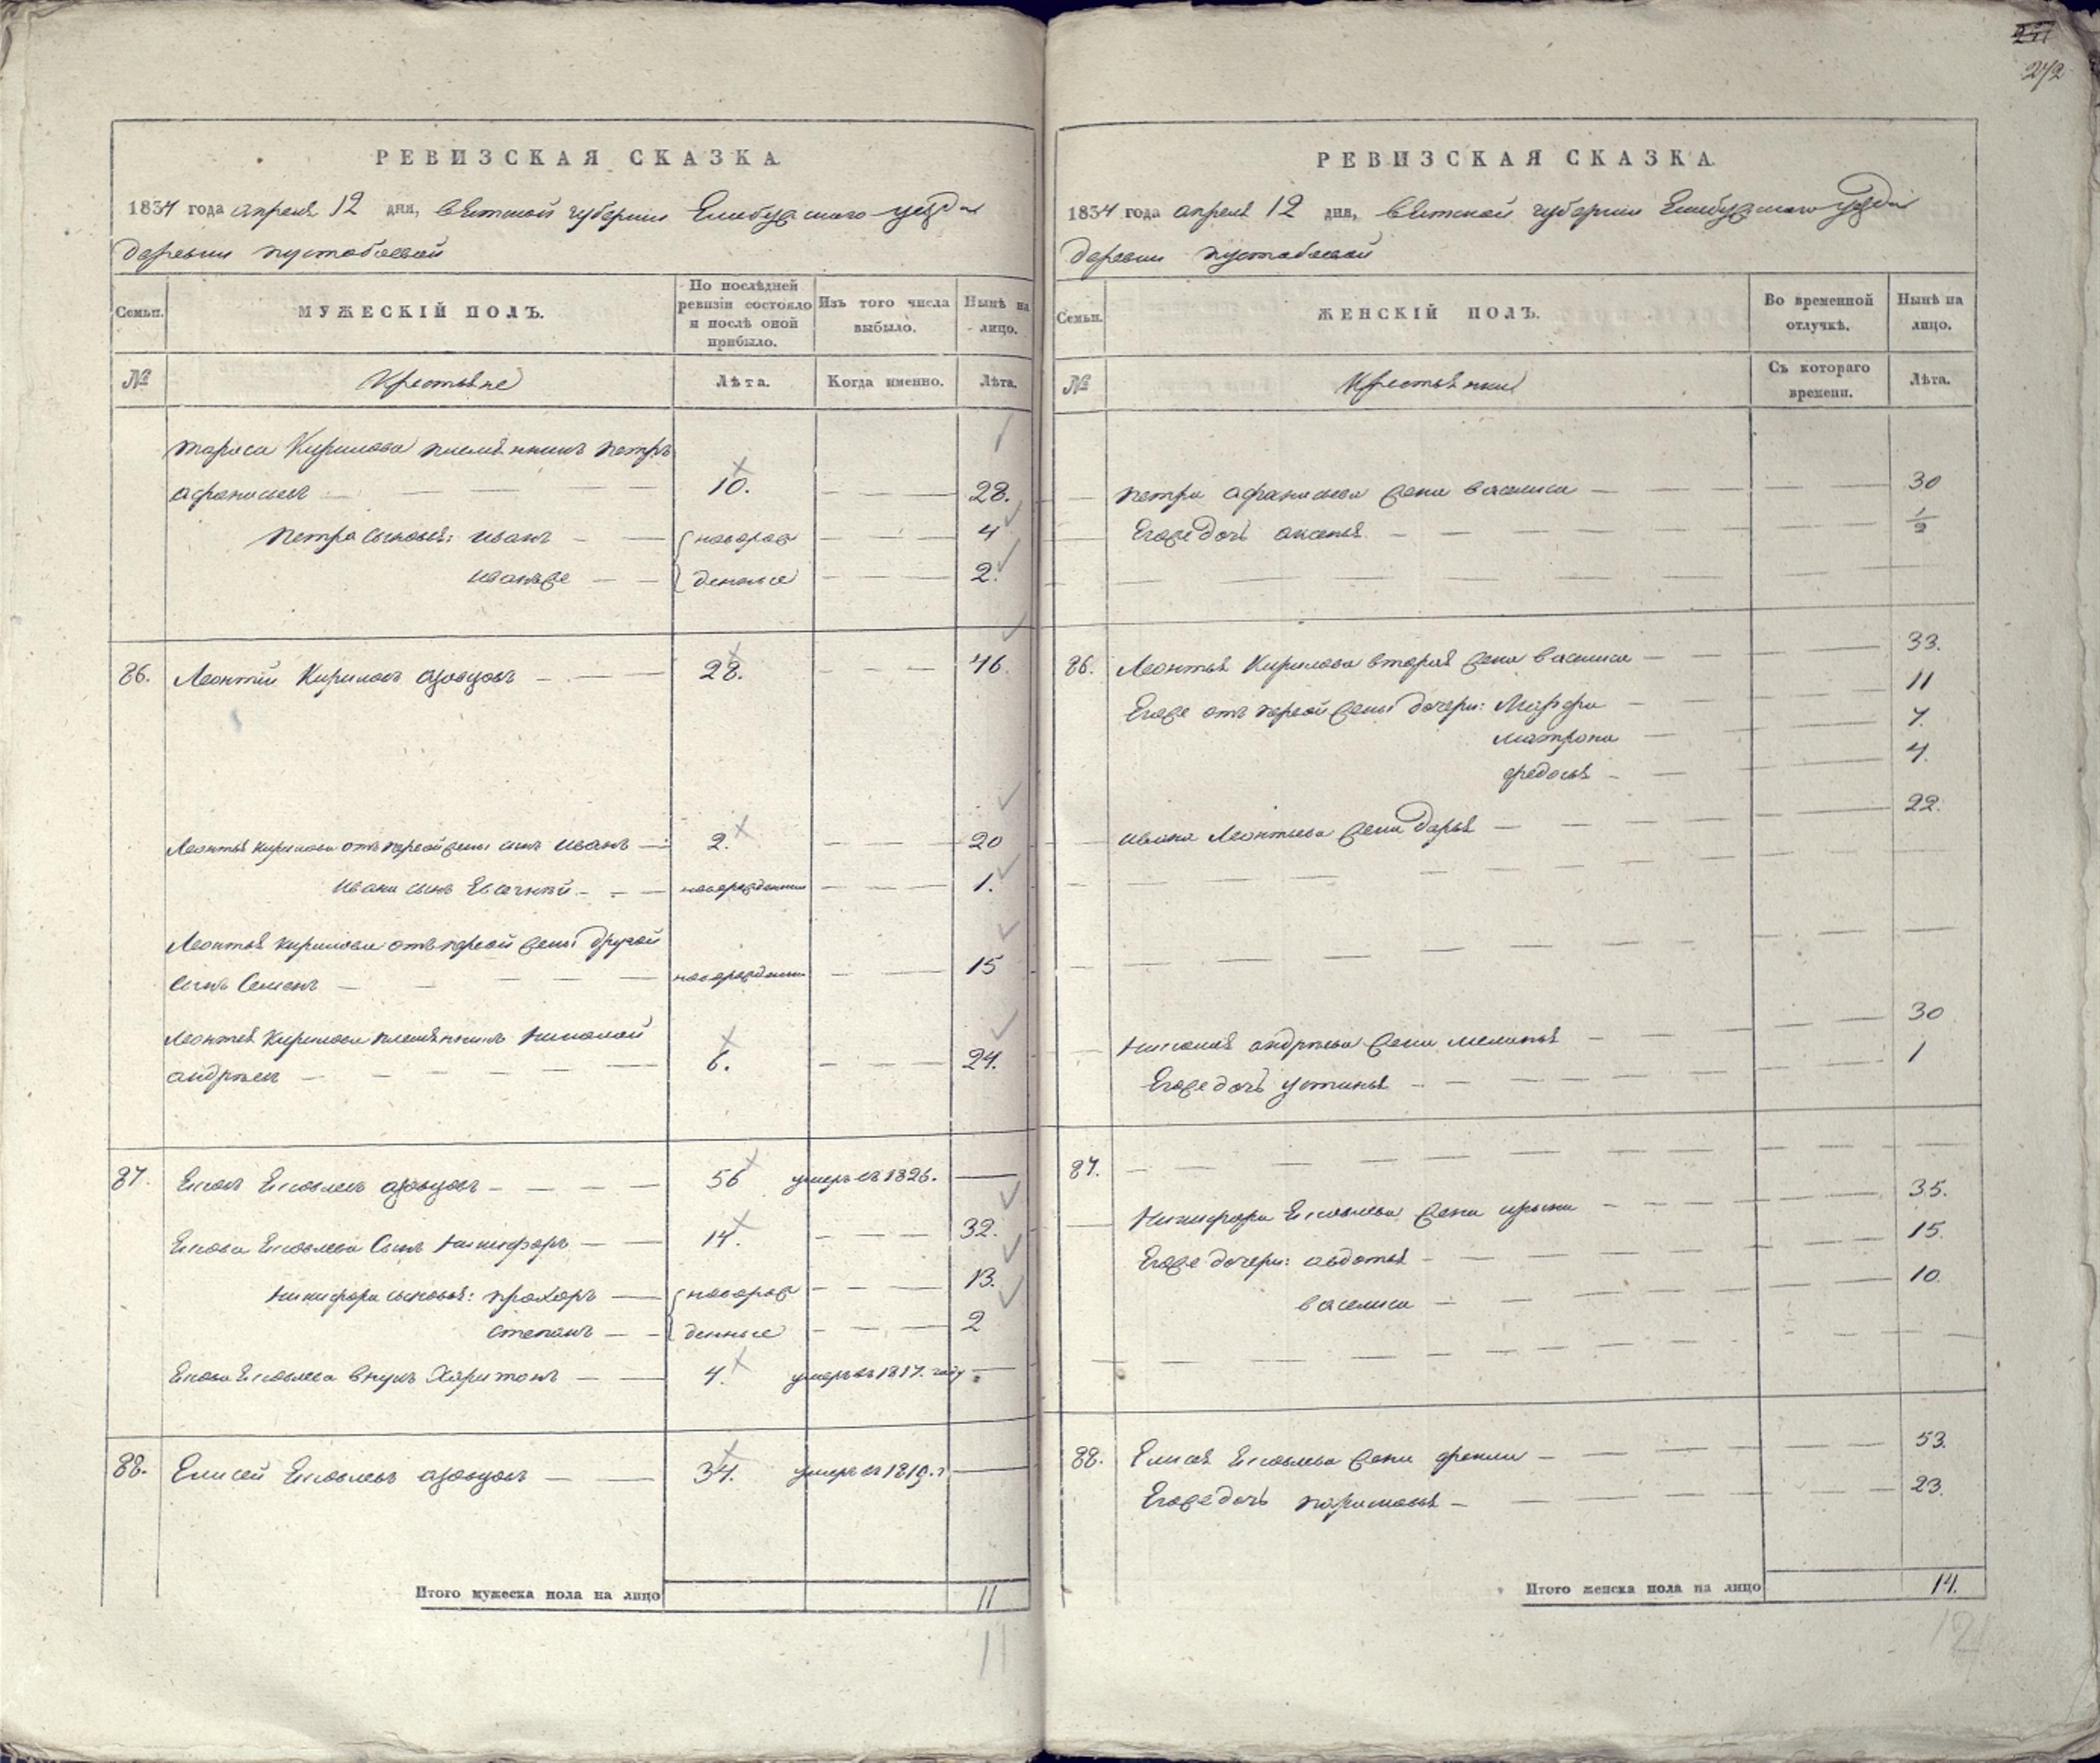 271
272
РЕВИЗСКАЯ СКАЗКА
1834 года апреля 12 дня, Вятской губернии Елабужскаго уезда
деревни пустобаевой
Семьи.
МУЖЕСКІЙ ПОЛЪ.
По послѣдней ревизіи состояло и послѣ оной прибыло.
Изъ того числа выбыло.
Нынѣ на лицо.
№
Крестьяне
Лѣта.
Когда именно.
Лѣта.
Тараса Кирилова племянникъ петръ
афанасьевъ 10. 28.
Петра сыновья: иванъ новорож 4
иванъже денные 2.
86. Леонтій Кириловъ 28. 46.
Леонтья кирилова отъ первой жены сынъ иванъ 2. 20
ивана сынъ Евсегнѣй новорожденной 1.
Леонтья кирилова отъ первой жены другой
сынъ Семенъ новорожденной 15
Леонтья Кирилова племянникъ Николай
андрѣевъ 6. 24.
87. Яковлевъ 56 умеръ въ 1826.
Яковлева Сынъ Никифоръ 14. 32.
Никифора сыновья: прохоръ новорож 13.
степанъ денные 2
Яковлева внукъ Харитонъ 4. умеръ въ 1817. году
88. Елисей Яковлевъ 34. умеръ въ 1819. г
Итого мужеска пола на лицо 11
11
РЕВИЗСКАЯ СКАЗКА.
1834 года апреля 12 дня, Вятской губернии Елабужскаго уезда
деревни пустобаевой
Семьи.
ЖЕНСКІЙ ПОЛЪ.
Во временной отлучкѣ.
Нынѣ на лицо.
№
Крестьянки
Съ котораго времени.
Лѣта.
петра афанасьева жена василиса 30
Егоже дочь аксенья 1/2
86. Леонтья Кирилова вторая жена василиса 33.
Егоже отъ первой жены дочери: Марфа 11
матрона 7.
федосья 4.
ивана Леонтьева жена дарья 22.
николая андрѣева жена меланья 30
Егоже дочь устинья 1
87.
Никифора Яковлева жена ирина 35.
Егоже дочери: авдотья 15.
василиса 10.
88. Елисея Яковлева жена фекла 53.
Егоже дочь парасковья 23.
Итого женска пола на лицо 14.